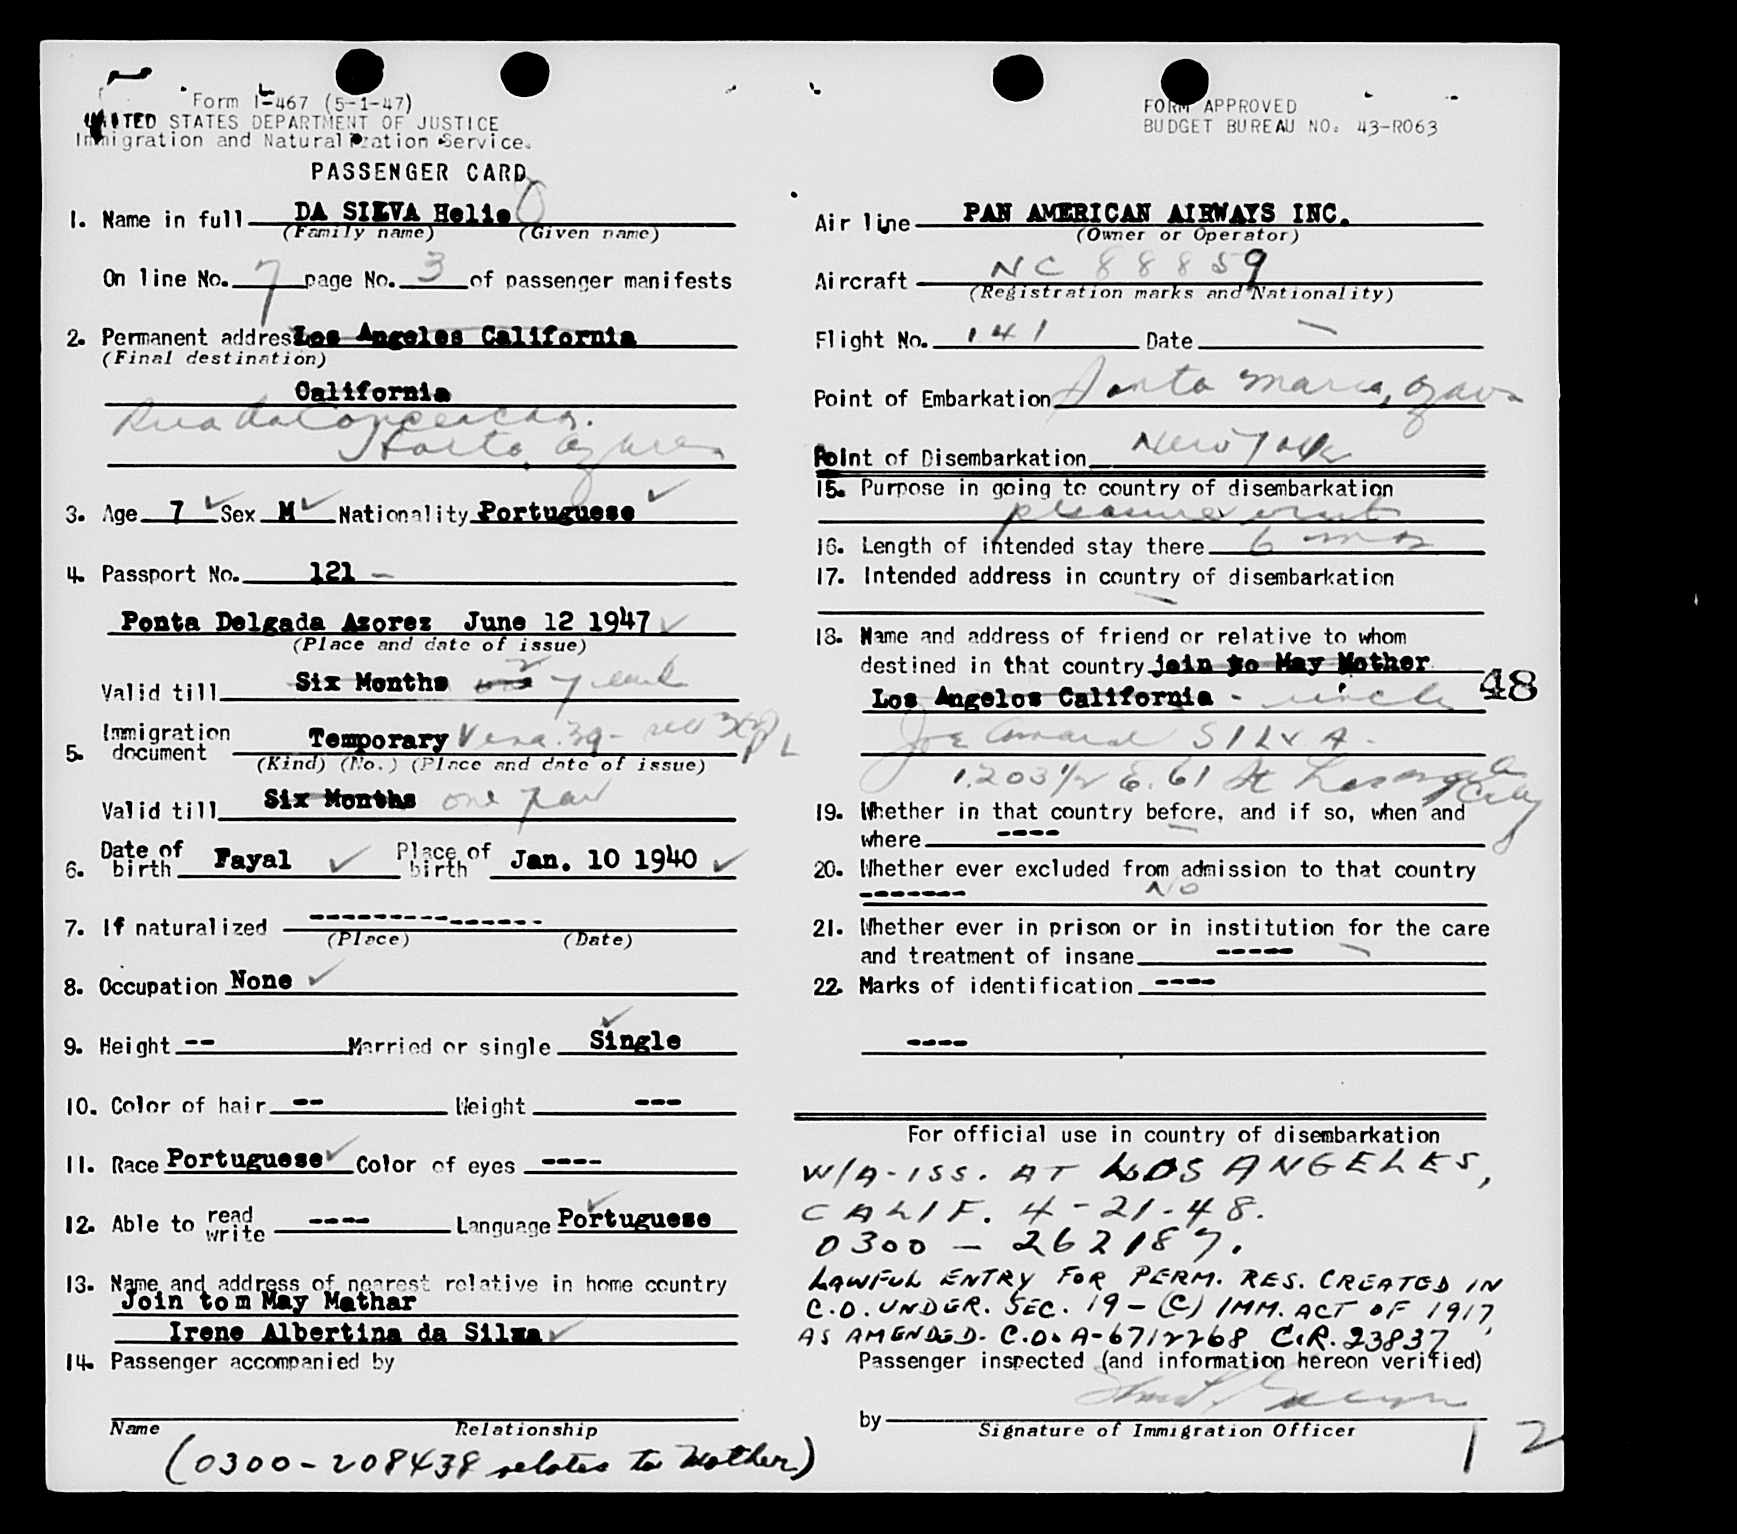 Form I-467 (5-1-47)
UNITED STATES DEPARTMENT OF JUSTICE
Immigration and Naturalization Service.
PASSENGER CARD
1. Name in full DA SILVA Helio
(Family name) (Given name)
On line No. 7 page No. 3 of passenger manifests
2. Permanent address Los Angeles California
(Final destination)
California
Rua da Conceicao.
Horta, Azores
3. Age 7 Sex M Nationality Portuguese
4. Passport No. 121 -
Ponta Delgada Azores June 12 1947
(Place and date of issue)
Valid till Six Months 2 years
5. Immigration document Temporary Visa. 3g-
(Kind) (No.) (Place and date of issue)
Valid till Six Months one year
6. Date of birth Fayal Place of birth Jan. 10 1940
7. If naturalized ---------------
(Place) (Date)
8. Occupation None
9. Height -- Married or single Single
10. Color of hair -- Weight ---
11. Race Portuguese Color of eyes ----
12. Able to read write ---- Language Portuguese
13. Name and address of nearest relative in home country
Join tom May Mathar
Irene Albertina da Silva
14. Passenger accompanied by
Name Relationship
(0300-208438 relates to Mother)
FORM APPROVED
BUDGET BUREAU NO. 43-R063
Air line PAN AMERICAN AIRWAYS INC.
(Owner or Operator)
Aircraft NC 88859
(Registration marks and Nationality)
Flight No. 141 Date
Point of Embarkation Santa Maria, Azores
Point of Disembarkation New York
15. Purpose in going to country of disembarkation
pleasure visit
16. Length of intended stay there 6 mos
17. Intended address in country of disembarkation
18. Name and address of friend or relative to whom
destined in that country join to May Mother
Los Angelos California - uncle
48
Joe Amaral SILVA-
1203 1/2 E. 61 St Los Angeles
Calif
19. Whether in that country before, and if so, when and
where ----
20. Whether ever excluded from admission to that country
------- No
21. Whether ever in prison or in institution for the care
and treatment of insane -----
22. Marks of identification ----
----
For official use in country of disembarkation
W/A-ISS. AT LOS ANGELES,
CALIF. 4-21-48.
0300-262187.
LAWFUL ENTRY FOR PERM. RES. CREATED IN
C.O. UNDER. SEC. 19-(C) IMM. ACT OF 1917,
AS AMENDED. C.O. A-6712268 C.R. 23837
Passenger inspected (and information hereon verified)
by
Signature of Immigration Officer
12